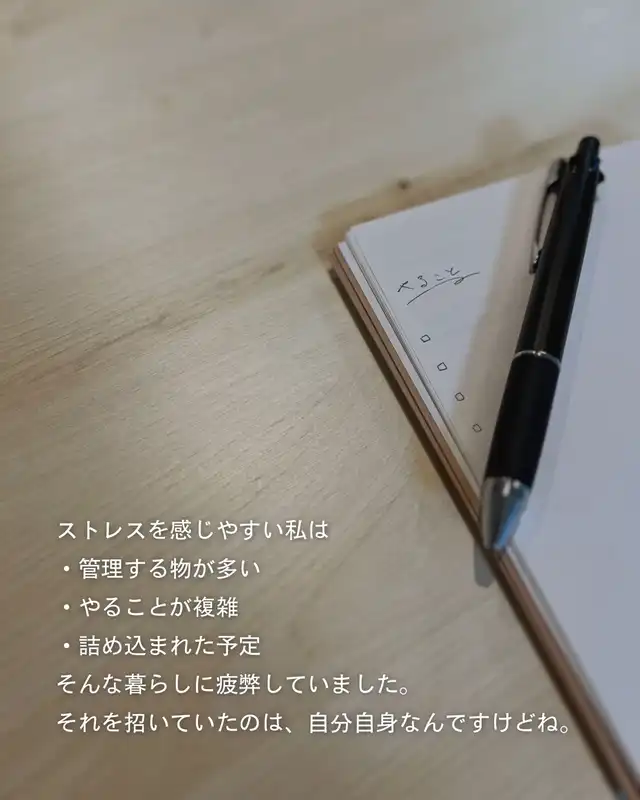 やること
ストレスを感じやすい私は
・管理する物が多い
・やることが複雑
・詰め込まれた予定
そんな暮らしに疲弊していました。
それを招いていたのは、自分自身なんですけどね。